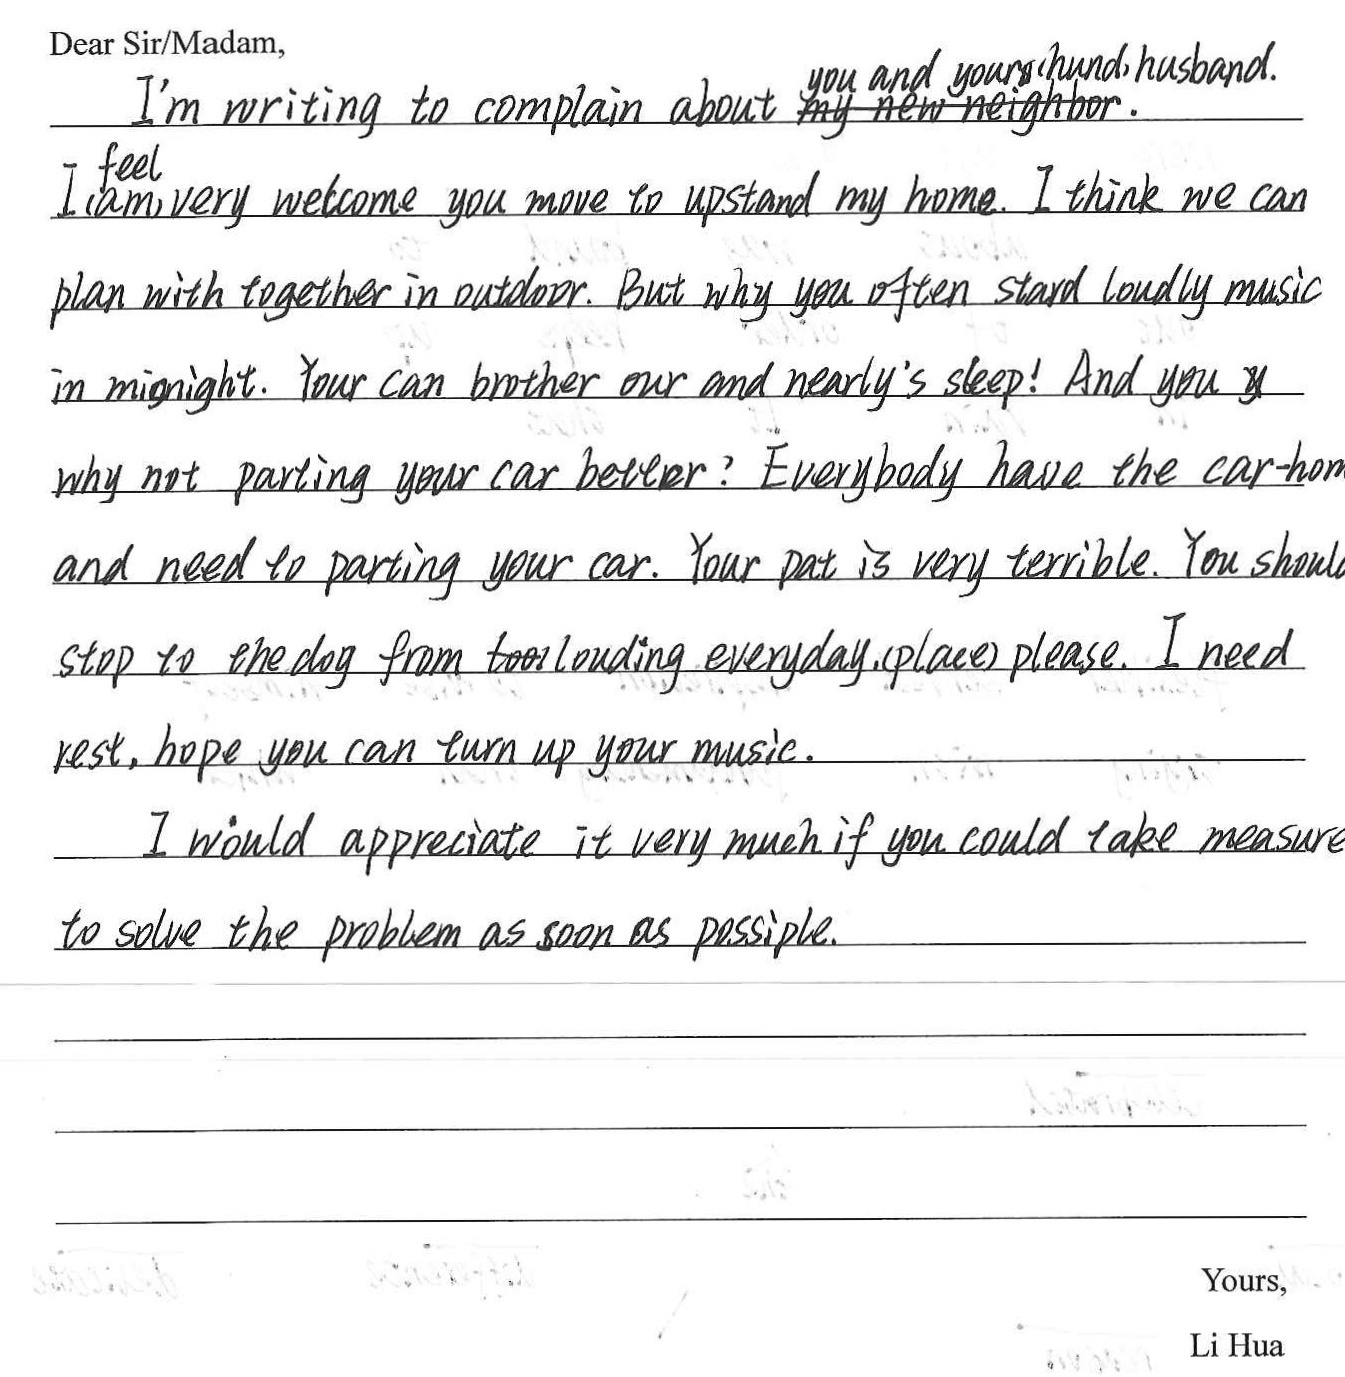 Dear Sir/Madam,
you and yours (hund) husband.
I'm writing to complain about my new neighbor.
feel
I (am) very welcome you move to upstand my home. I think we can
plan with together in outdoor. But why you often stard loudly music
in mignight. Your can brother our and nearly's sleep! And you y
why not parting your car better? Everybody have the car-hom
and need to parting your car. Your pat is very terrible. You should
stop to the dog from louding everyday. (place) please. I need
rest, hope you can turn up your music.
I would appreciate it very much if you could take measure
to solve the problem as soon as possiple.
Yours,
Li Hua